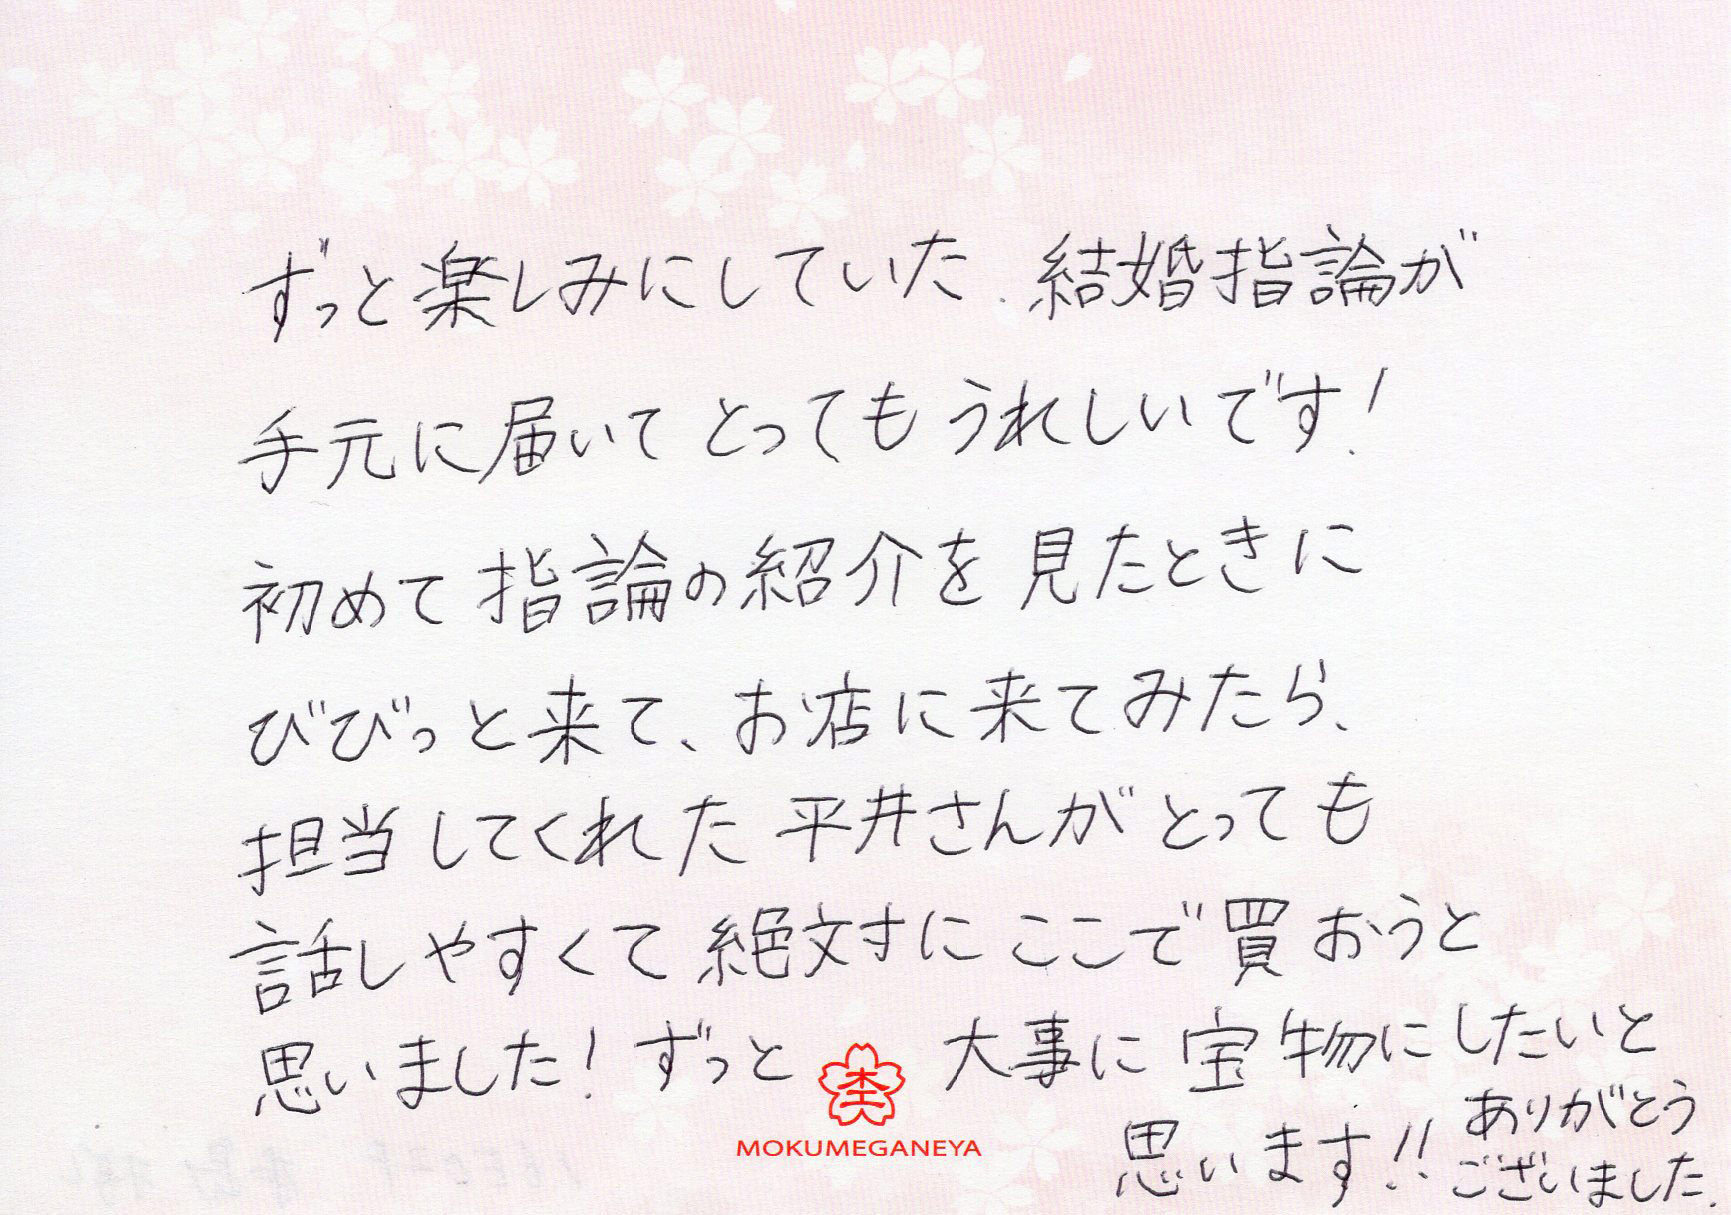 ずっと楽しみにしていた、結婚指論が
手元に届いてとってもうれしいです!
初めて指論の紹介を見たときに
びびっと来て、お店に来てみたら、
担当してくれた平井さんがとっても
話しやすくて絶対にここで買おうと
思いました!ずっと大事に宝物にしたいと
思います!!ありがとう
ございました.
MOKUMEGANEYA